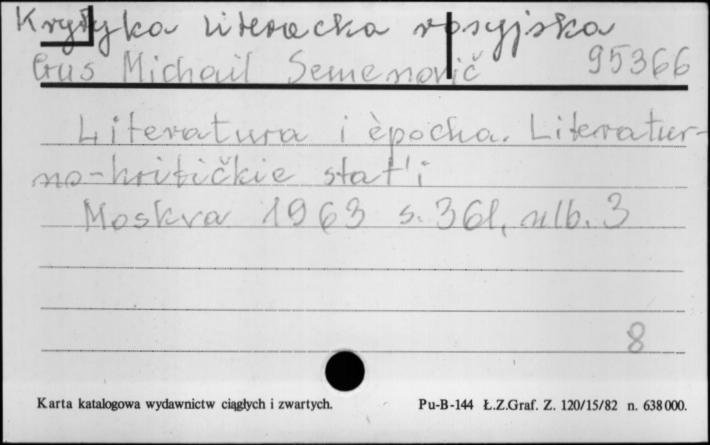 Krytyka literacka rosyjska
Gus Michail Semenovič 95366
Literatura i èpocha. Literatur-
no-kritičkie stat'i
Moskva 1963 s. 361, nlb. 3
8
Karta katalogowa wydawnictw ciągłych i zwartych. Pu-B-144 Ł.Z.Graf. Z. 120/15/82 n. 638000.